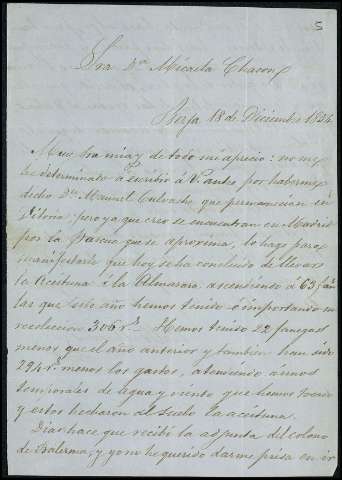 5
Sra Dª Micaela Chacon
Berja 18 de Diciembre 1824
Muy Sra mia y de todo mi aprecio: no me
he determinado á escribir á V. antes por haberme
dicho Dn. Manuel Calvache que permanecian en
Vitoria, pero ya que creo se encuentran en Madrid
por la Pascua que se aproxima, lo hago para
manifestarle que hoy se ha concluido de llevar
la aceituna á la Almazara ascendiendo á 63 fans
las que este año hemos tenido é importando su
recoleccion 306 rs. Hemos tenido 22 fanegas
menos que el año anterior y tambien han sido
294 rs menos los gastos, atendiendo á unos
temporales de agua y viento que hemos tenido
y estos hecharon al suelo la aceituna.
Dias hace que recibí la adjunta del colono
de Balerma, y yo no he querido darme prisa en ir